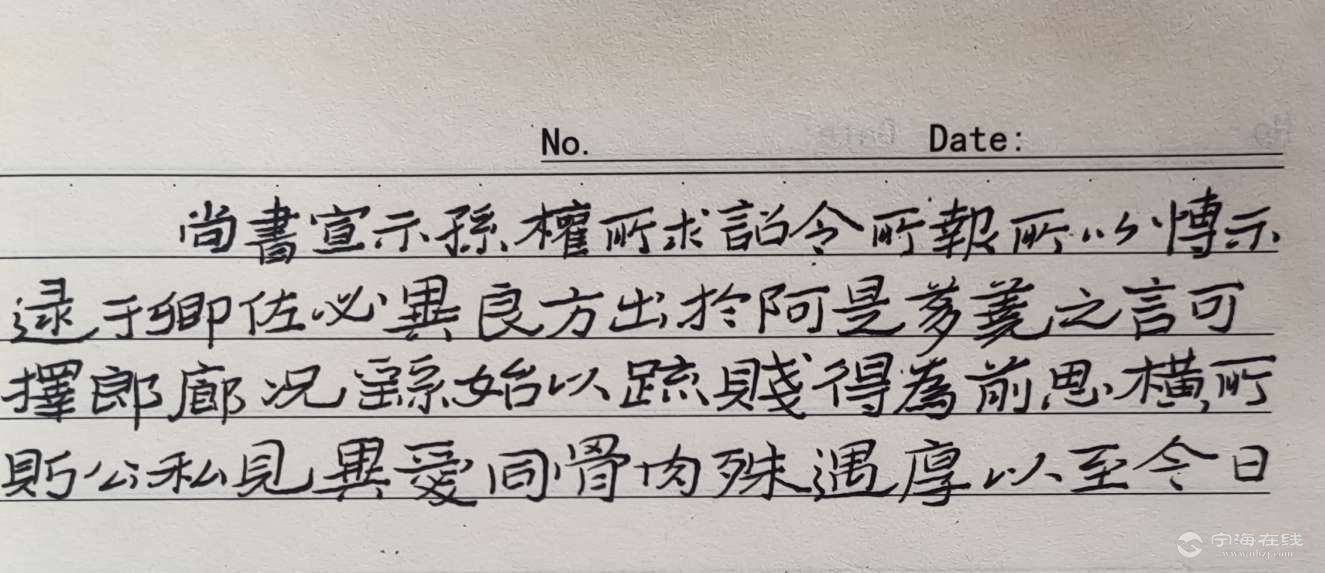 No. Date:
尚書宣示孫權所求詔令所報所以博示
逯于卿佐必異良方出於阿是芻蕘之言可
擇郎廊况繇始以疏賤得為前思横所
貝公私見異愛同骨肉殊遇厚以至今日
宁海在线
www.nhzj.com